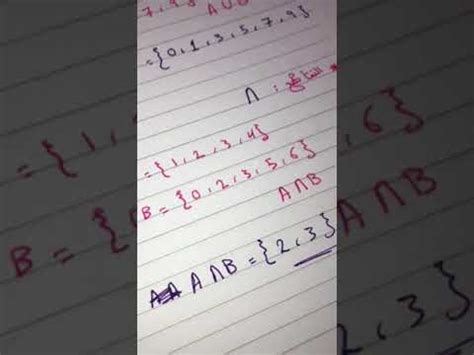 7, 9} A∪B
={0, 1, 3, 5, 7, 9}
∩ :
={1, 2, 3, 4}
B={0, 2, 3, 5, 6}
A∩B
A∩B={2, 3}